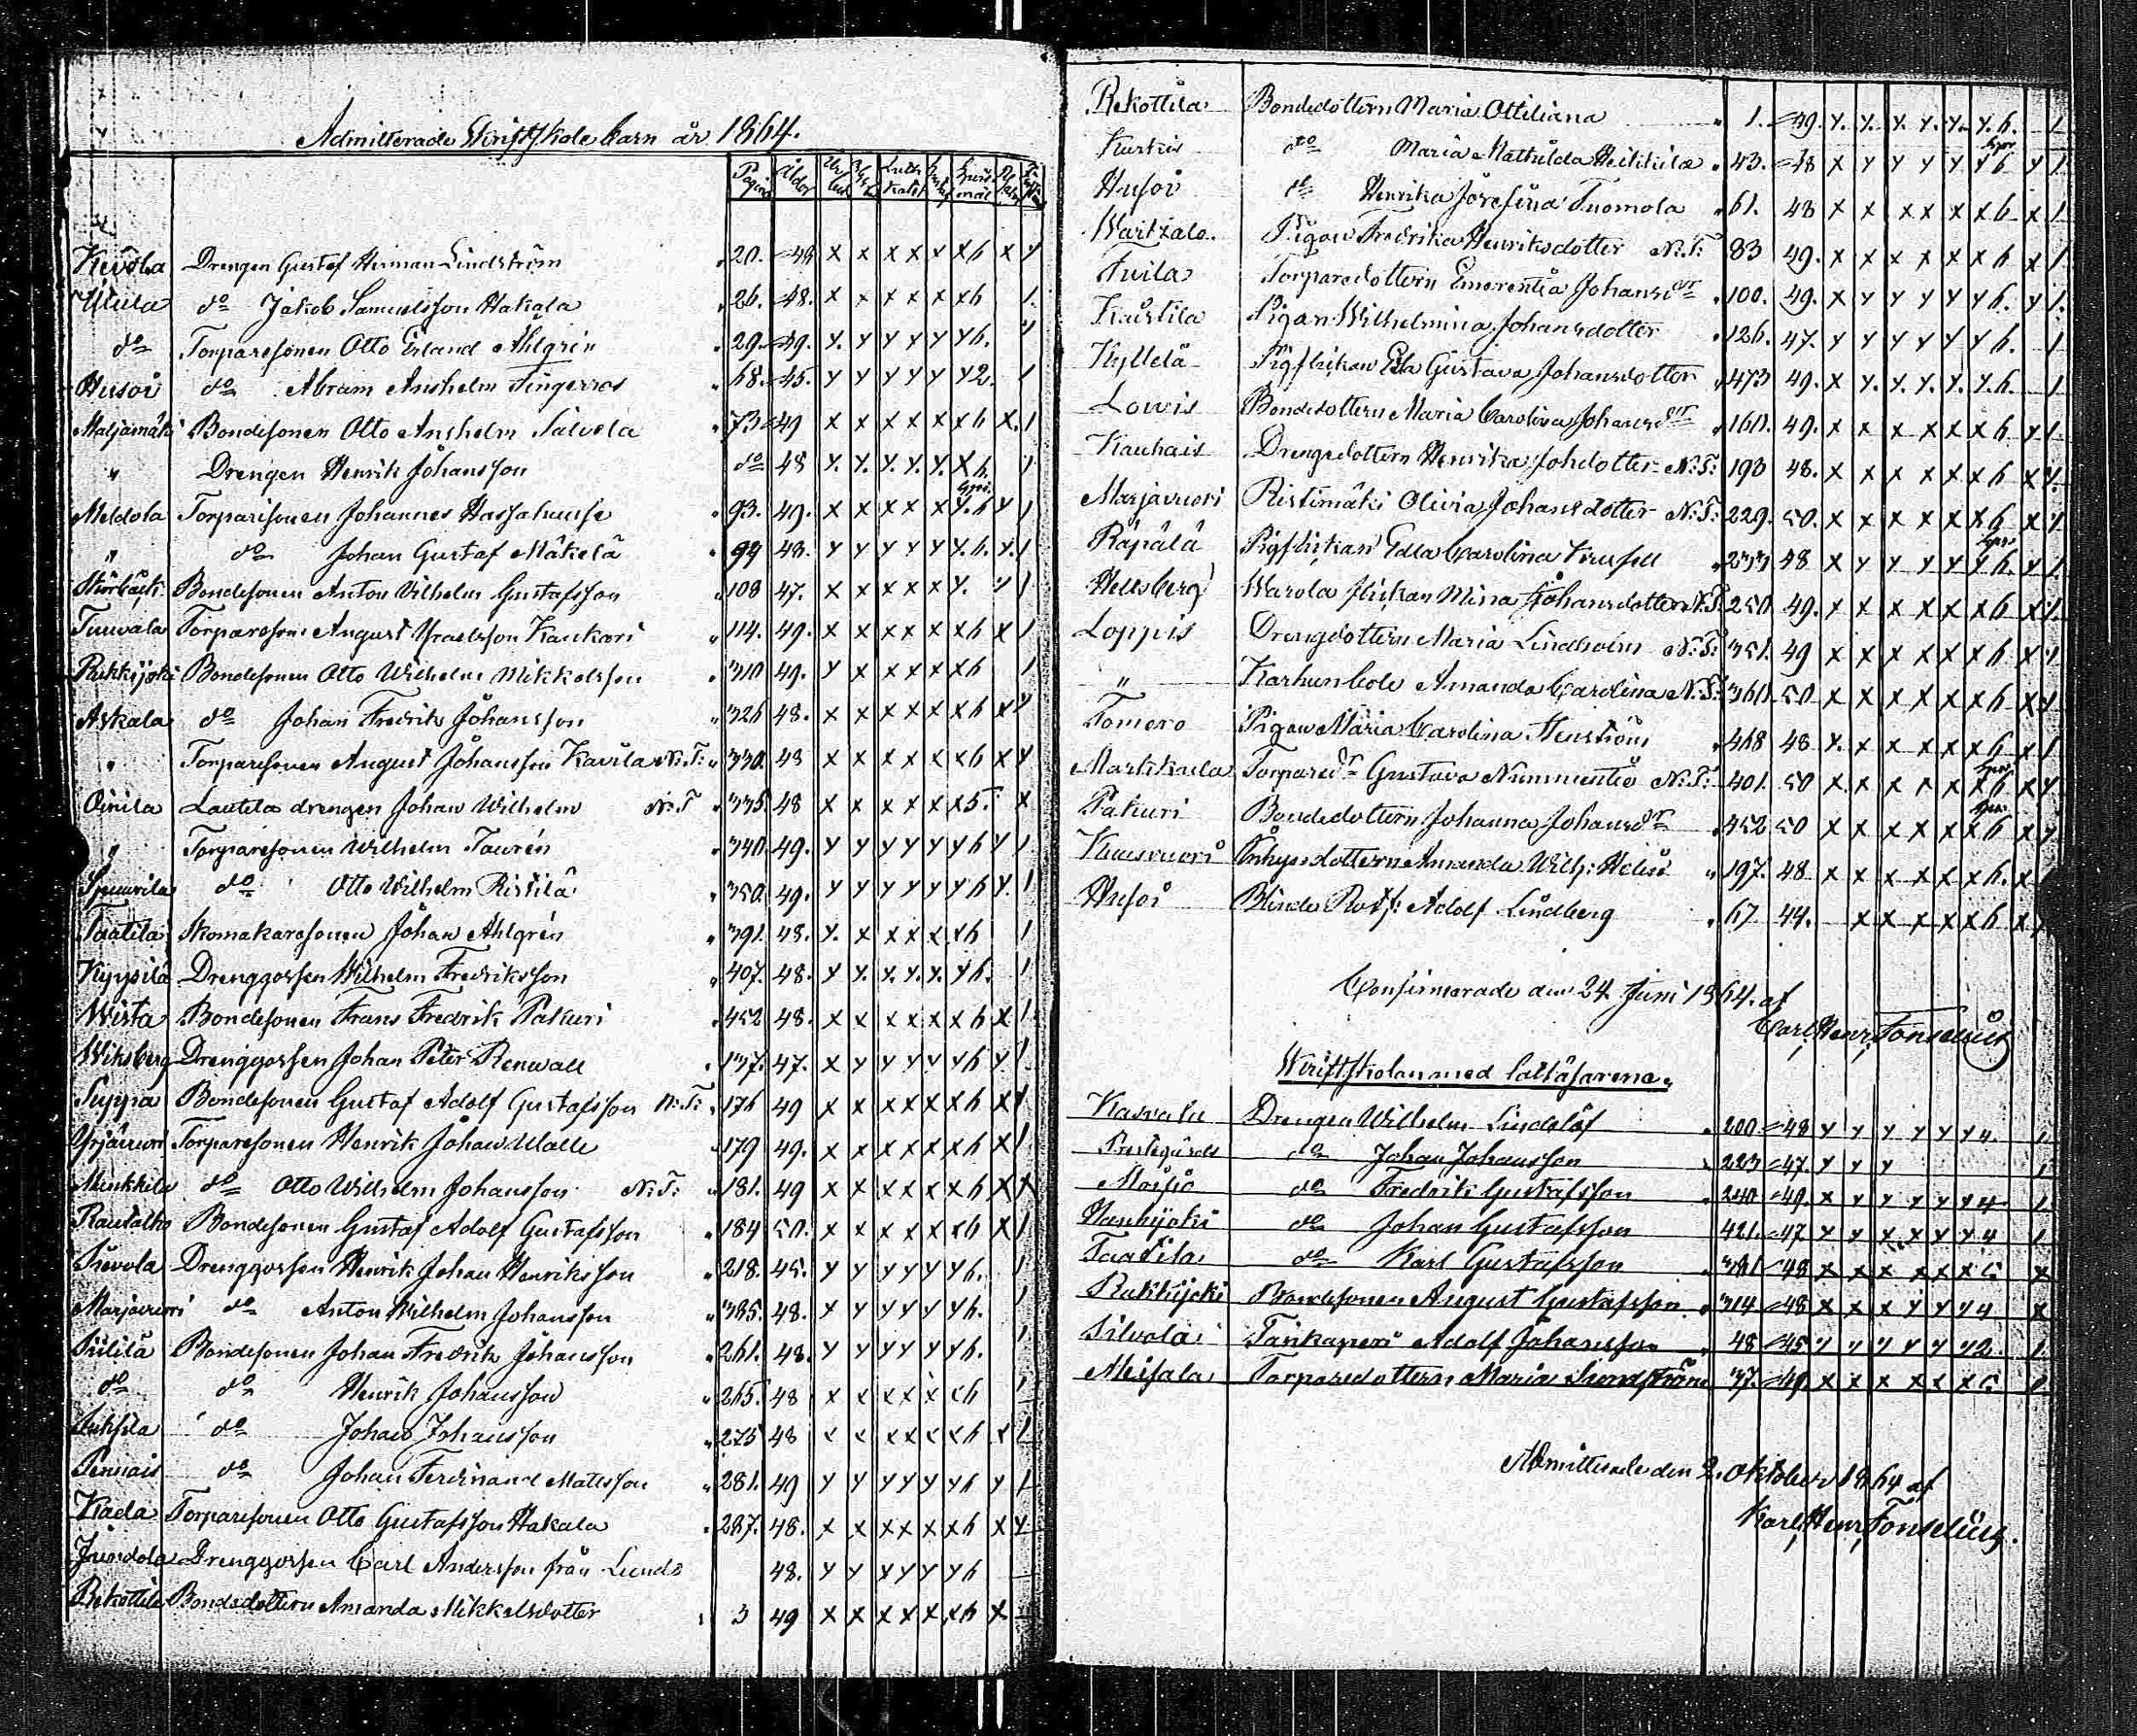 Admitterade Skriftskole barn år 1864.
Pagina Ålder
Kevola Drengen Gustaf Herman Lindström 20. 48 x x x x x x 6 x 1
Ylula do Jakob Samuelsson Hakala 26. 48. x x x x x x 6 1.
do Torparesonen Otto Erland Ahlgrén 29. 49. y. y y y y y 6. 1
Husoi do Abram Anshelm Tingerroos 68. 45. y y y y y y 2. 1
Maljamäki Bondesonen Otto Anshelm Salvela 73 49 x x x x x x 6 x. 1
" Drengen Henrik Johansson do 48 y. y. y. y. y. x 6. 1
Meldola Torparesonen Johannes Hassahause 93. 49. x x x x x y. 6 y 1
" do Johan Gustaf Mäkelä 99 48. y y y y y y. 6. y. 1
Bondesonen Anton Vilhelm Gustafsson 108 47. x x x x x y. 1
Tuuvala Torpareson August Ysraelsson Kankari 114. 49. x x x x x x 6 x 1
Rukkijoki Bondesonen Otto Wilhelm Mikkelsson 310 49. y x x x x x 6 1
Askala do Johan Fredrik Johansson 326 48. x x x x x x 6 x y
" Torparesonen August Johansson Kavila N:F: 330. 48 x x x x x x 6 x y
Oinila Lautila drengen Johan Wilhelm N:F 335. 48 x x x x x x 5. x
" Torparesonen Wilhelm Taurén 340. 49. y y y y y y 6 y 1
Spurila do Otto Wilhelm Ristilä 350. 49. y y y y y y 6 y. 1
Taatila Skomakaresonen Johan Ahlgrén 391. 48. y. x x x x x 6 1
Kyysilä Drenggossen Wilhelm Fredriksson 407. 48. y y. y. y. y. y 6. 1
Wista Bondesonen Frans Fredrik Pakuri 452 48. x x x x x x 6 x 1
Wiksberg Drenggossen Johan Peter Renwall 137. 47. x y y y y y 6 y 1
Seppä Bondesonen Gustaf Adolf Gustafsson N:F: 176 49 x x x x x x 6 x 1
Yrjävuori Torparesonen Henrik Johan Ulalle 179 49. x x x x x x 6 x 1
Munkkila do Otto Wilhelm Johansson N:F: 181. 49 x x x x x x 6 x x
Rautalho Bondesonen Gustaf Adolf Gustafsson 184 50. x x x x x x 6 x 1
Sievola Drenggossen Henrik Johan Henriksson 218. 45. y y y y y y 6. 1
Marjavuori do Anton Wilhelm Johansson 385. 48. x y y y y y 6. 1
Siililä Bondesonen Johan Fredrik Johansson 261. 48. y y y y y y 6. 1
do do Henrik Johansson 265. 48 x x x x x x 6 1
Juksila do Johan Johansson 275 48 x x x x x x 6 x 1
Pennais do Johan Ferdinand Mattsson 281. 49 y y y y y y 6 y 1
Kada Torparesonen Otto Gustafsson Hakala 287. 48. x x x x x x 6 x y
Jundola Drenggossen Carl Andersson från Lundo 48. y y y y y y 6
Rekottila Bondedottern Amanda Mikkelsdotter 3 49 x x x x x x 6 x 1
Rekottila Bondedottern Maria Ottiliana 1. 49. y. y. y. y. y. y. 6. 1
Kurkis do Maria Mathilda Heikkilä 43. 48 x y y y y y 6 y 1.
Husoi do Henrika Josefina Tuomola 61. 48 x x x x x x 6 x 1.
Wartsalo. Pigan Fredrika Henriksdotter N:F: 83 49. x x x x x x 6 x 1
Tuila Torparedottern Emerentia Johansdr 100. 49. x y y y y y 6. y 1.
Kaistila Pigan Wilhelmina Johansdotter 126. 47. y y y y y y 6. 1
Kyllelä Pigflickan Eva Gustava Johansdotter 473 49. x y. y. y. y. y. 6. 1
Lowis Bondedottern Maria Carolina Johansdr 160. 49. x x x x x x 6 y 1.
Kauhais Drengedottern Henrika Johdotter N:F: 190 48. x x x x x x 6 x y.
Marjavuori Ristimäki Olivia Johansdotter N:F: 229. 50. x x x x x x 6 x y.
Räpälä Pigflickan Edla Carolina 233 48 x y y y y y 6. y 1.
Hellsberg Warola flickan Mina Johansdotter N:F. 250. 49. x x x x x x 6 x 1.
Loppis Drengdottern Maria Lindholm N:F: 351. 49 x x x x x x 6 x y
" Karhunkole Amanda Carolina N:F: 360. 50 x x x x x x 6 x y
Tomero Pigan Maria Carolina Henström 468 48 y. x x x x x 6 x 1
Markkula Torparedr Gustava Nummentö N:F: 401. 50 x x x x x x 6 x y
Pakuri Bondedottern Johanna Johansdr 452 50 x x x x x x 6 x y
Kuusvuori Inhysdottern Amanda Wilh: Helin 197. 48 x x x x x x 6. x
Husoi Blinde Rotf: Adolf Lindberg 67 44. x x x x x 6 x
Confirmerade den 24 Juni 1864. af
Carl Henr Fonselius
Skriftskolan med
Kasvala Drengen Wilhelm Lindelöf 200. 48 y y y y y y 4. 1
Prestegårds do Johan Johansson 223 47. y y y 1
Moisio do Fredrik Gustafsson 240. 49. x y y y y y 4. 1.
Hankijoki do Johan Gustafsson 421. 47 y y x x y y 4 1
Taatila do Karl Gustafsson 381 48 x x x x x x 5 x
Rukkijoki Bondesonen August Gustafsson 314 48 x x x y y y 4 x
Silvola Tankaperi Adolf Johansson 48 45 y y y y y y 2. 1
Meisala Torparedottern Maria Sundström 37. 49. x x x x x x 5 1
Admitterade den 2. Oktober 1864 af
Karl Henr Fonselius.